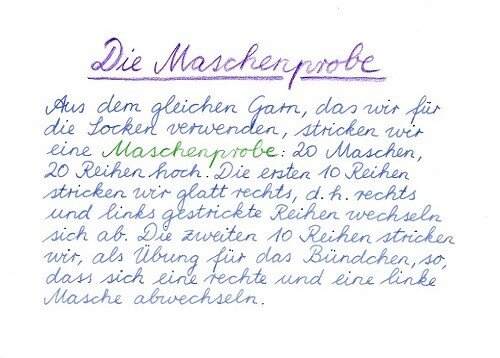 Die Maschenprobe
Aus dem gleichen Garn, das wir für
die Socken verwenden, stricken wir
eine Maschenprobe: 20 Maschen,
20 Reihen hoch. Die ersten 10 Reihen
stricken wir glatt rechts, d. h. rechts
und links gestrickte Reihen wechseln
sich ab. Die zweiten 10 Reihen stricken
wir, als Übung für das Bündchen, so,
dass sich eine rechte und eine linke
Masche abwechseln.